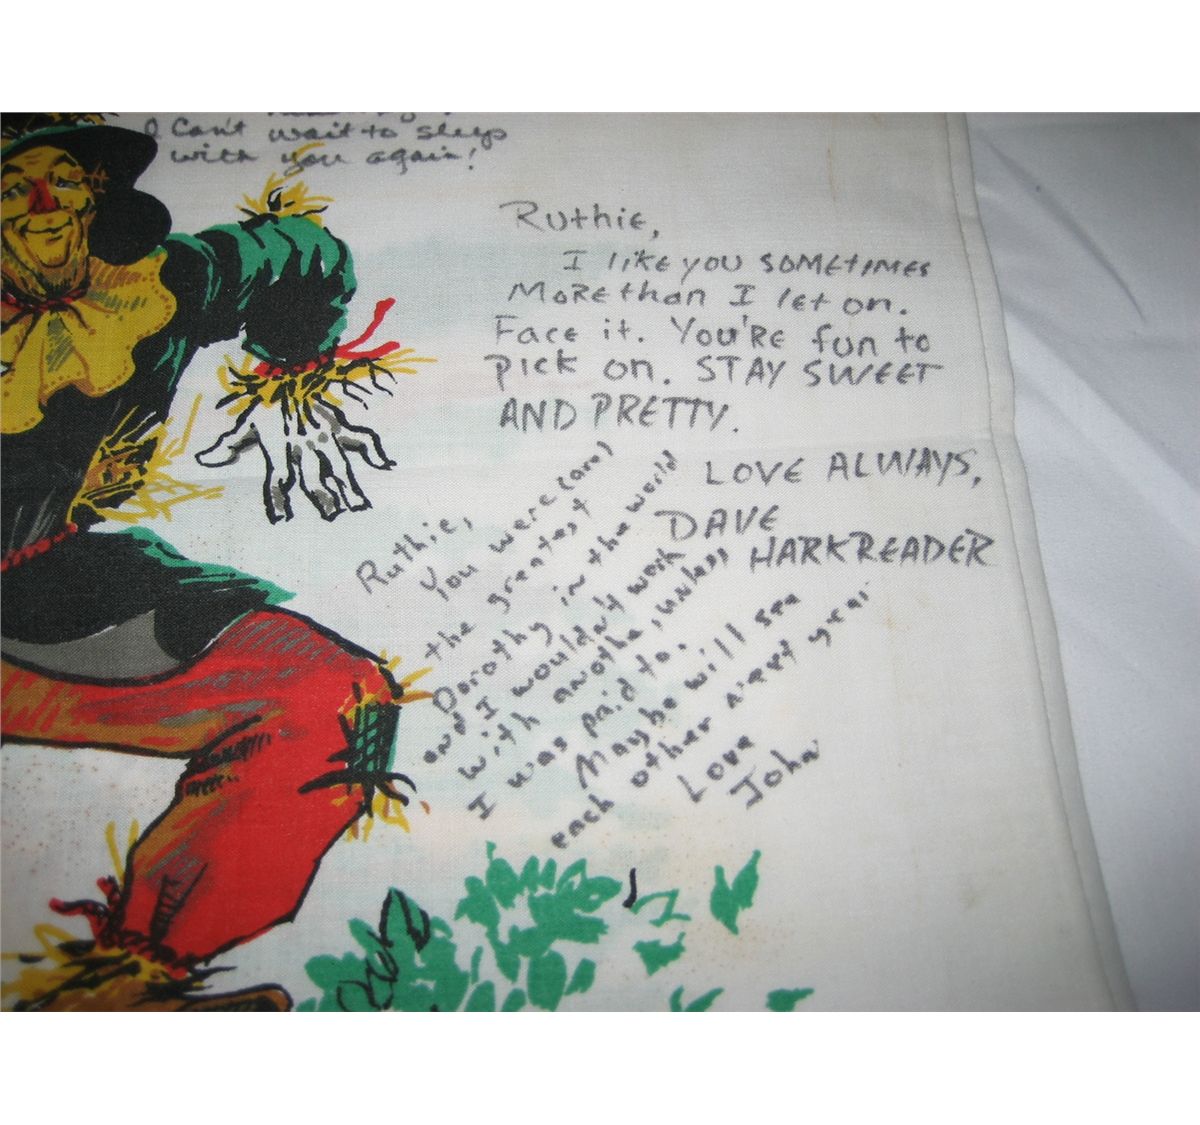 I Can't wait to sleep
with you again!
Ruthie,
I like you SOMETIMES
MORE than I let on.
Face it. You're fun to
pick on. STAY SWEET
AND PRETTY.
LOVE ALWAYS,
DAVE
HARKREADER
Ruthie,
You were (are)
the greatest
Dorothy in the world
and I wouldn't work
with another, unless
I was paid to.
Maybe will see
each other next year
Love
John